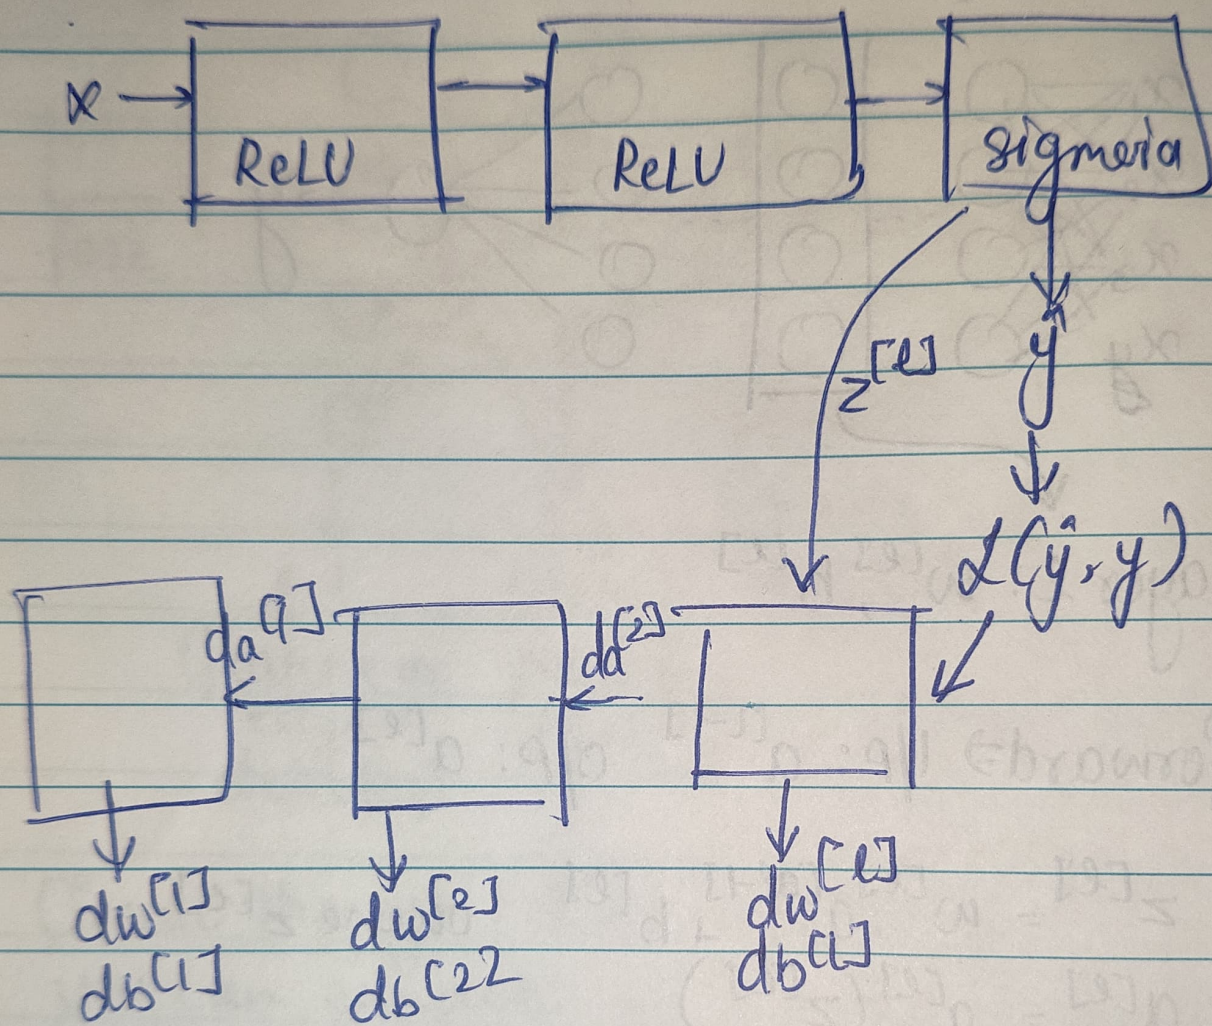 x → ReLU → ReLU → sigmoid
z^[l]
ŷ
L(ŷ, y)
da^[1] da^[2]
dw^[1] dw^[2] dw^[l]
db^[1] db^[2] db^[l]